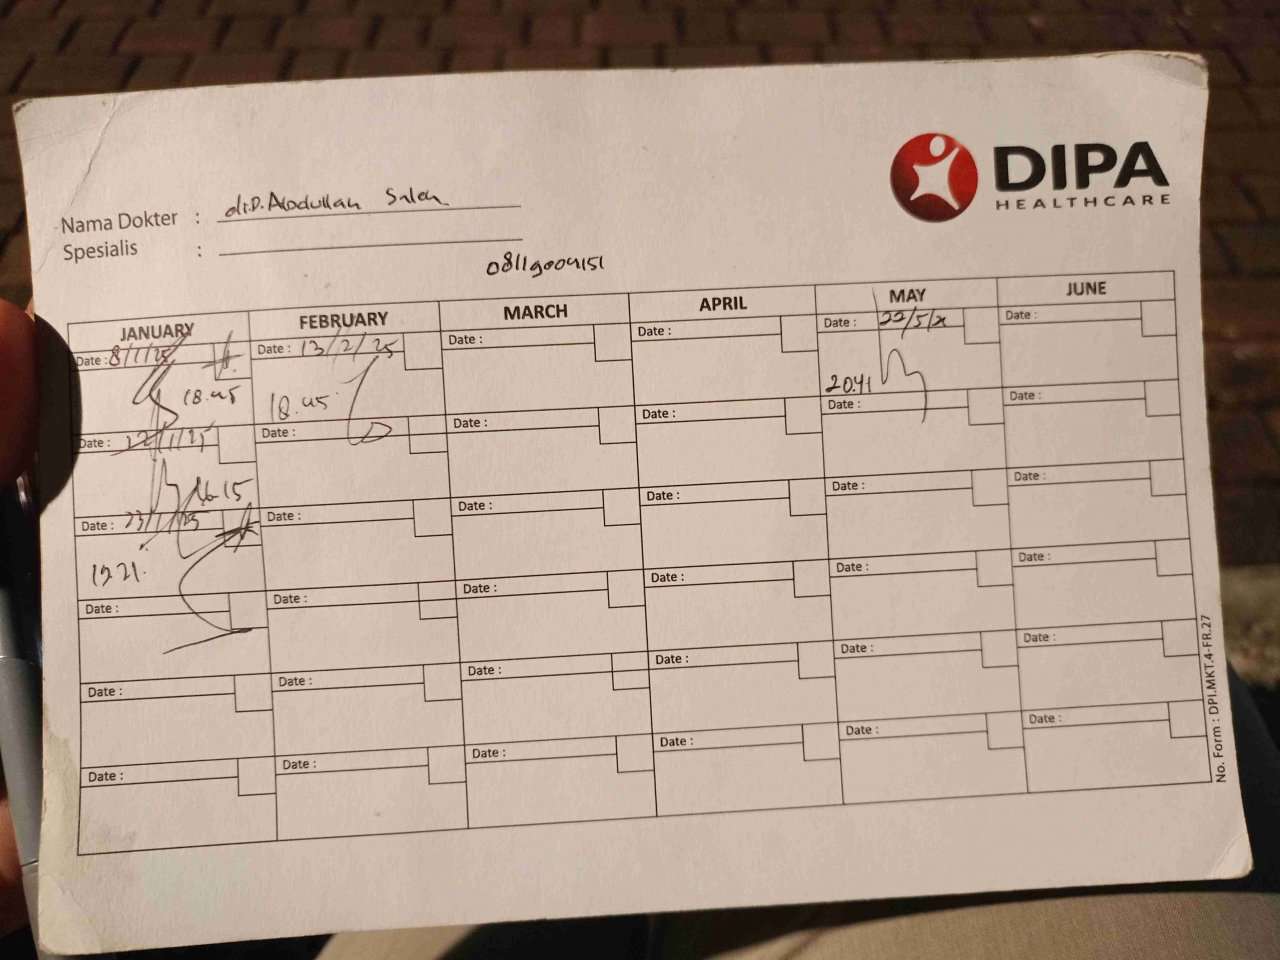 DIPA
HEALTHCARE
Nama Dokter : Abdullah Saleh
Spesialis :
08119004151
JANUARY FEBRUARY MARCH APRIL MAY JUNE
Date : 8/1/25 Date : 13/2/25 Date : Date : Date : 22/5/ Date :
18.45 18.45 20.41
Date : 22/1/25 Date : Date : Date : Date : Date :
16.15
Date : 23/1/25 Date : Date : Date : Date : Date :
19 21.
Date : Date : Date : Date : Date : Date :
Date : Date : Date : Date : Date : Date :
Date : Date : Date : Date : Date : Date :
No. Form : DPI.MKT.4-FR.27